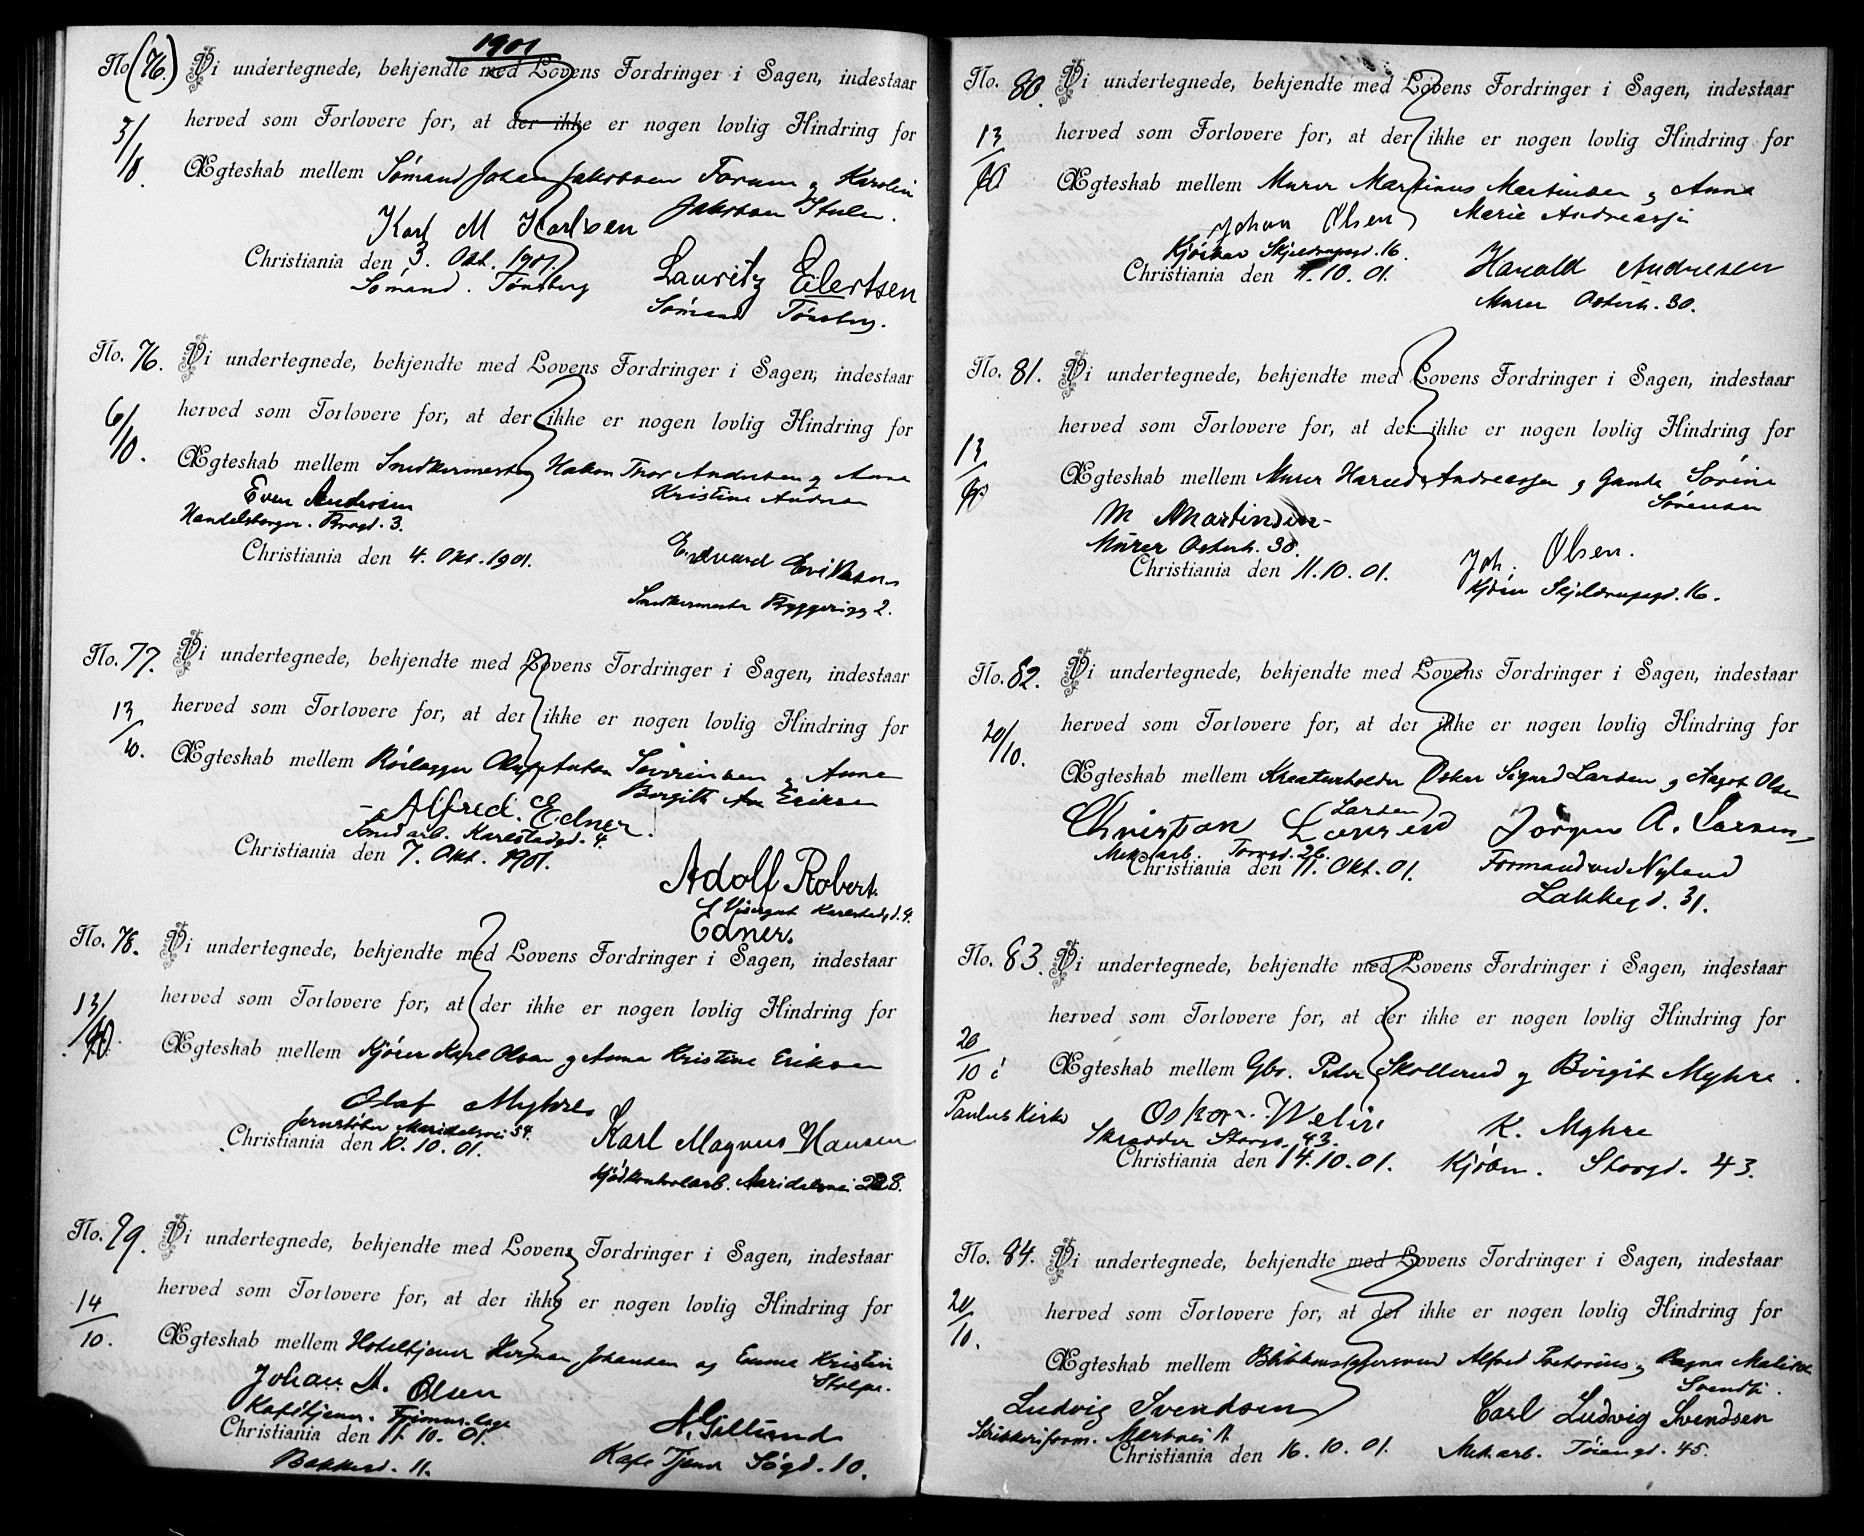 1901
No (76.) Vi undertegnede, bekjendte med Lovens Fordringer i Sagen, indestaar
herved som Forlovere for, at der ikke er nogen lovlig Hindring for
Ægteskab mellem Sømand Johan Jakobsen Farum og Karolin
Jakobsen
Karl M Karlsen
Christiania den 3. Okt. 1901.
Lauritz Eilertsen
Sømand. Tønsberg
Sømand Tønsberg.
No. 76. Vi undertegnede, bekjendte med Lovens Fordringer i Sagen, indestaar
6/10. herved som Forlovere for, at der ikke er nogen lovlig Hindring for
Ægteskab mellem Snedkermester Hakon Thor Andersen og Anna
Kristine Andersen
Even Andersen
Handelsborger. 3.
Christiania den 4. Okt. 1901.
Edvard Eriksen
Snedkermester 2.
No. 77. Vi undertegnede, bekjendte med Lovens Fordringer i Sagen, indestaar
13/10. herved som Forlovere for, at der ikke er nogen lovlig Hindring for
Ægteskab mellem Rørlægger Anton Sørensen og Anna
Eriksen
Alfred. Edner.
Smedarb. Karlstadgd. 4.
Christiania den 7. Okt. 1901.
Adolf Robert
Visergut Karlstadgd. 4.
Edner.
No. 78. Vi undertegnede, bekjendte med Lovens Fordringer i Sagen, indestaar
13/10. herved som Forlovere for, at der ikke er nogen lovlig Hindring for
Ægteskab mellem Kjører Karl Olsen og Anna Kristine Eriksen
Olaf Myhre
Jernstøber Maridalsvei 54.
Christiania den 10.10.01.
Karl Magnus Hansen
Kjødkontrolarb. Maridalsvei 228.
No. 79. Vi undertegnede, bekjendte med Lovens Fordringer i Sagen, indestaar
14/10. herved som Forlovere for, at der ikke er nogen lovlig Hindring for
Ægteskab mellem Hoteltjener Herman Johansen og Emma Kristin
Johan A. Olsen
Kafétjener.
Christiania den 11.10.01.
A. Gillund
Bakkegd. 11.
Kafe Tjener Søgd. 10.
No. 80. Vi undertegnede, bekjendte med Lovens Fordringer i Sagen, indestaar
13/10 herved som Forlovere for, at der ikke er nogen lovlig Hindring for
Ægteskab mellem Murer Martinus Martinsen og Anna
Marie Andreassen
Johan Olsen
Kjører Skjeldrupsgd. 16.
Christiania den 11.10.01.
Harald Andresen
Murer Osterh. 30.
No. 81. Vi undertegnede, bekjendte med Lovens Fordringer i Sagen, indestaar
13/10 herved som Forlovere for, at der ikke er nogen lovlig Hindring for
Ægteskab mellem Murer Harald Andreassen og Sørine
Sørensen
M Martinsen
Murer Osterh. 30.
Christiania den 11.10.01.
Joh. Olsen.
Kjører Skjeldrupsgd. 16.
No. 82. Vi undertegnede, bekjendte med Lovens Fordringer i Sagen, indestaar
20/10. herved som Forlovere for, at der ikke er nogen lovlig Hindring for
Ægteskab mellem Kreaturholder Oskar Sigurd Larsen og Aagot Olsen
Larsen
Christian
Mek. arb. Torvgd. 26.
Christiania den 11. Okt. 01.
Jørgen A. Larsen
Formand ved Nyland
Lakkegd. 31.
No. 83. Vi undertegnede, bekjendte med Lovens Fordringer i Sagen, indestaar
herved som Forlovere for, at der ikke er nogen lovlig Hindring for
20/10 i
Ægteskab mellem Gbr. Peder Skollerud og Birgit Myhre.
Paulus Kirke
Oskar Welin
Skrædder Storgd. 43.
Christiania den 14.10.01.
K. Myhre
Kjøbm. Storgd. 43.
No. 84. Vi undertegnede, bekjendte med Lovens Fordringer i Sagen, indestaar
20/10. herved som Forlovere for, at der ikke er nogen lovlig Hindring for
Ægteskab mellem Blikkenslagersvend Alfred Pretorius og Ragna
Ludvig Svendsen
Christiania den 16.10.01.
Carl Ludvig Svendsen
Mek. arb. Tøiengd. 45.